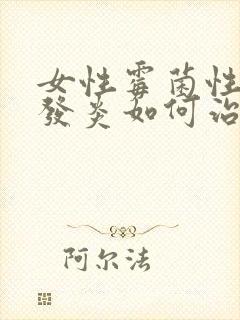 女性霉菌性
發炎如何治
阿尔法